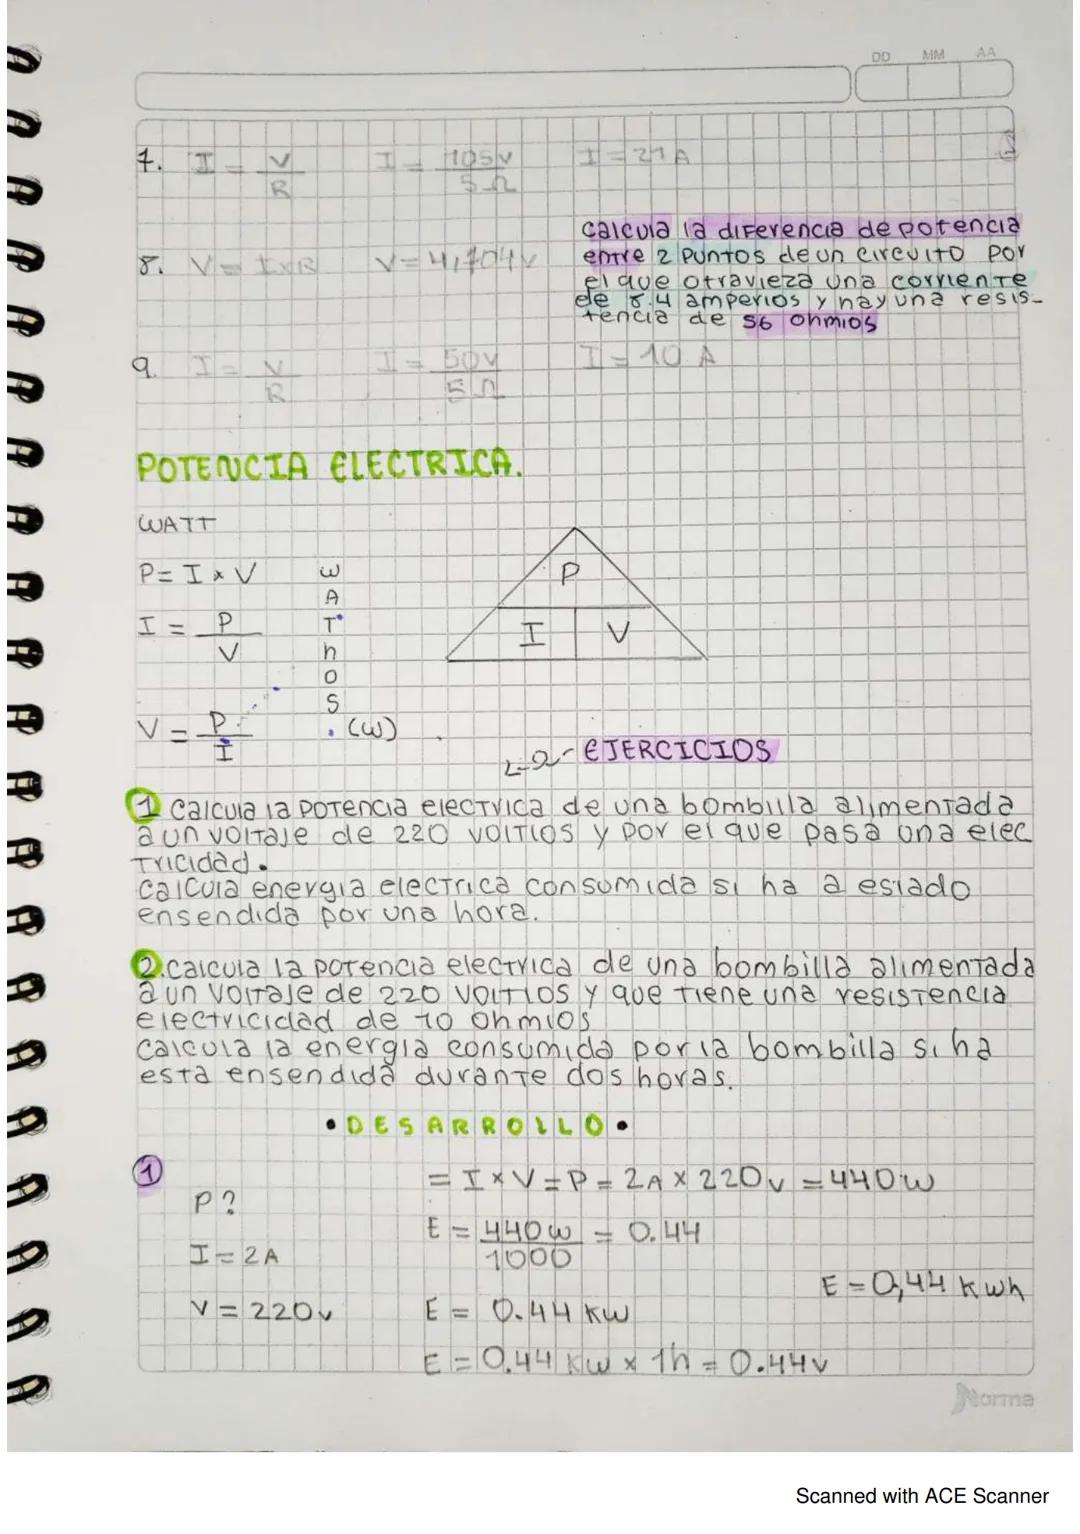 DD MM AA
7. I = V/R I = 105v/5Ω I = 21 A
calcula la diferencia de potencia
entre 2 puntos de un circuito por
8. V = IxR V = 4,704v
el que otravieza una corriente
de 8.4 amperios y hay una resis-
tencia de 56 ohmios
9. I = V/R I = 50v/5Ω I = 10 A
POTENCIA ELECTRICA.
WATT
P = I x V
I = P/V
V = P/I
WATThOS
(W)
P
I V
EJERCICIOS
1 calcula la potencia electrica de una bombilla alimentada
a un voltaje de 220 voltios y por el que pasa una elec
tricidad.
calcula energia electrica consumida si ha a estado
ensendida por una hora.
2. calcula la potencia electrica de una bombilla alimentada
a un voltaje de 220 voltios y que tiene una resistencia
electricidad de 10 ohmios
calcula la energia consumida por la bombilla si ha
esta ensendida durante dos horas.
• DESARROLLO •
1
= I x V = P = 2A x 220v = 440w
P?
E = 440w/1000 = 0.44
I = 2A
E = 0,44 Kwh
V = 220v E = 0.44 Kw
E = 0.44 Kw x 1h = 0.44v
Norma
Scanned with ACE Scanner